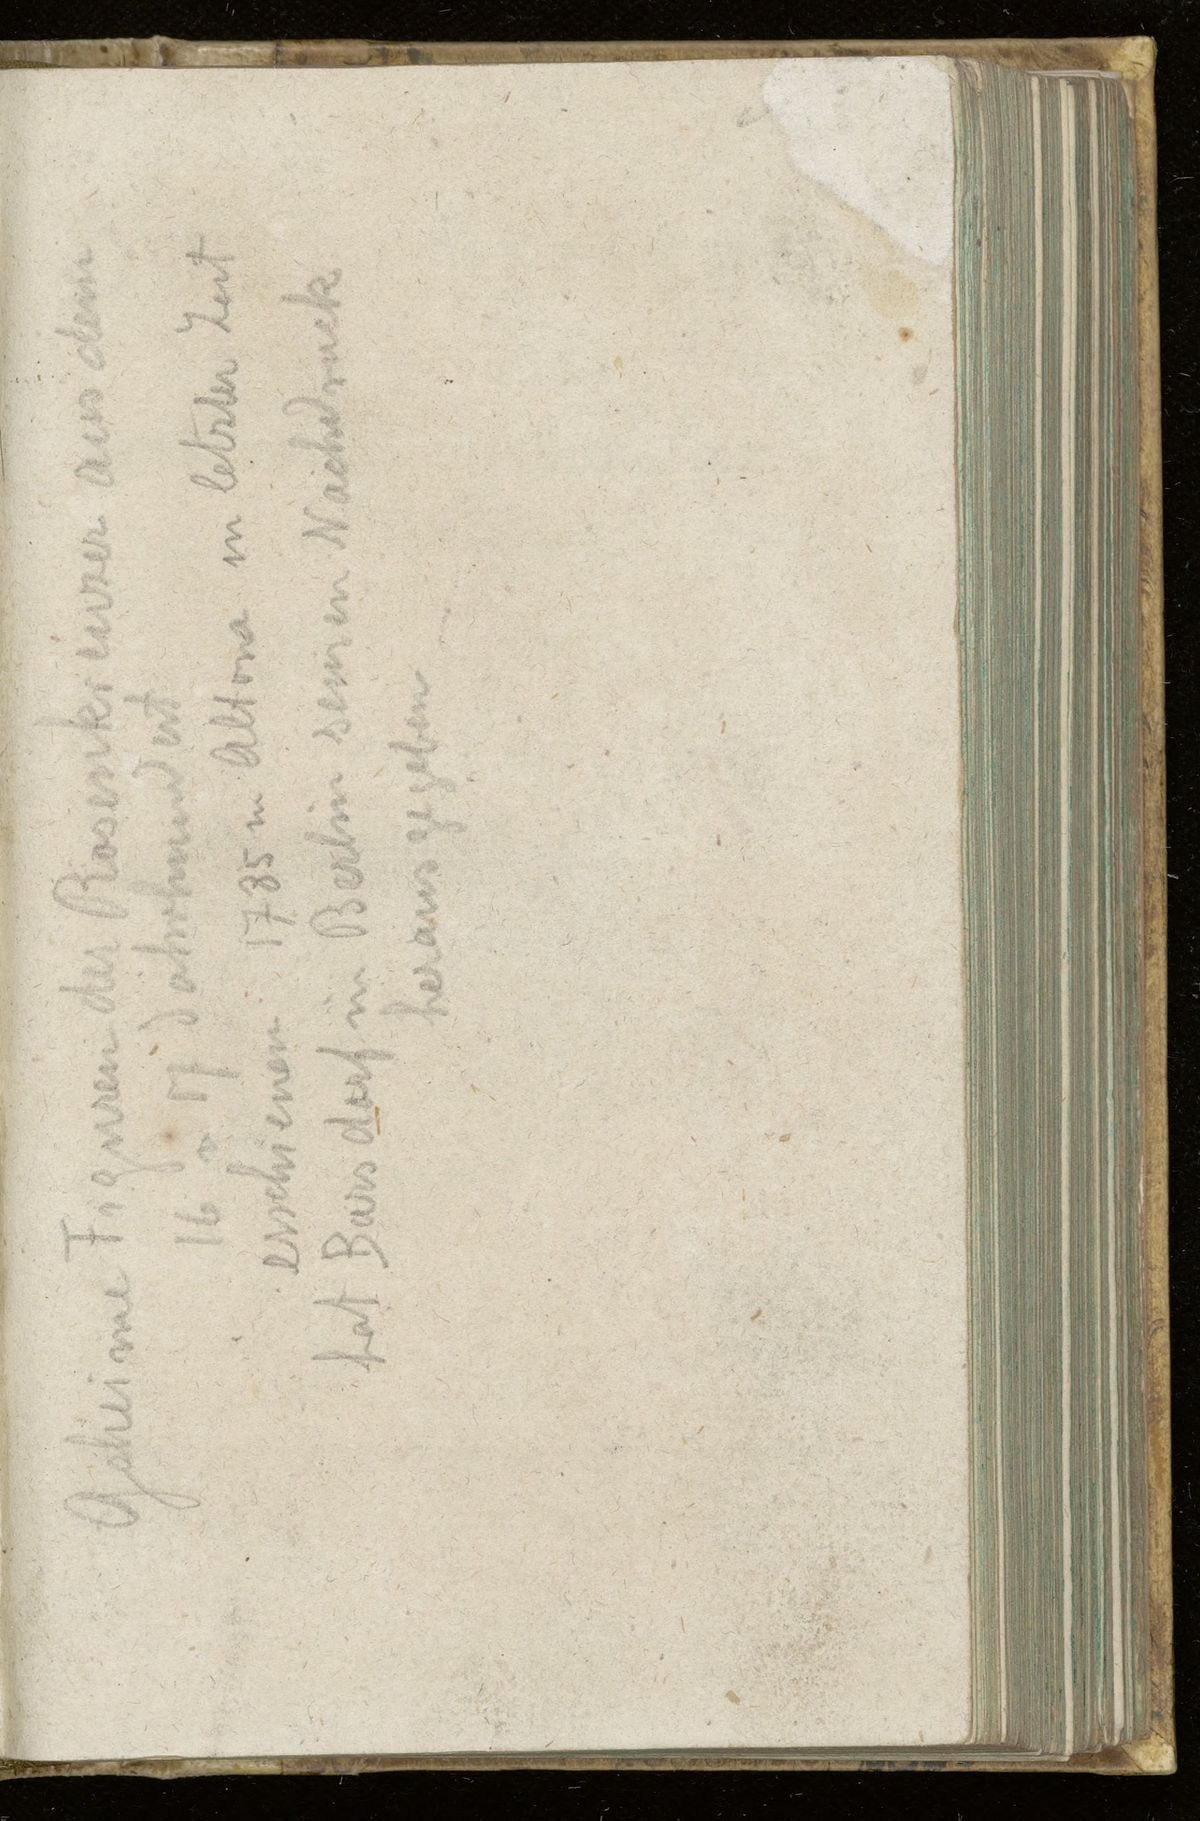 Geheime Figuren der Rosenkreuzer aus dem
16 u 17 Jahrhundert
erschienen 1785 in Altona in letzter Zeit
hat Barsdorf in Berlin seinen Nachdruck
herausgegeben